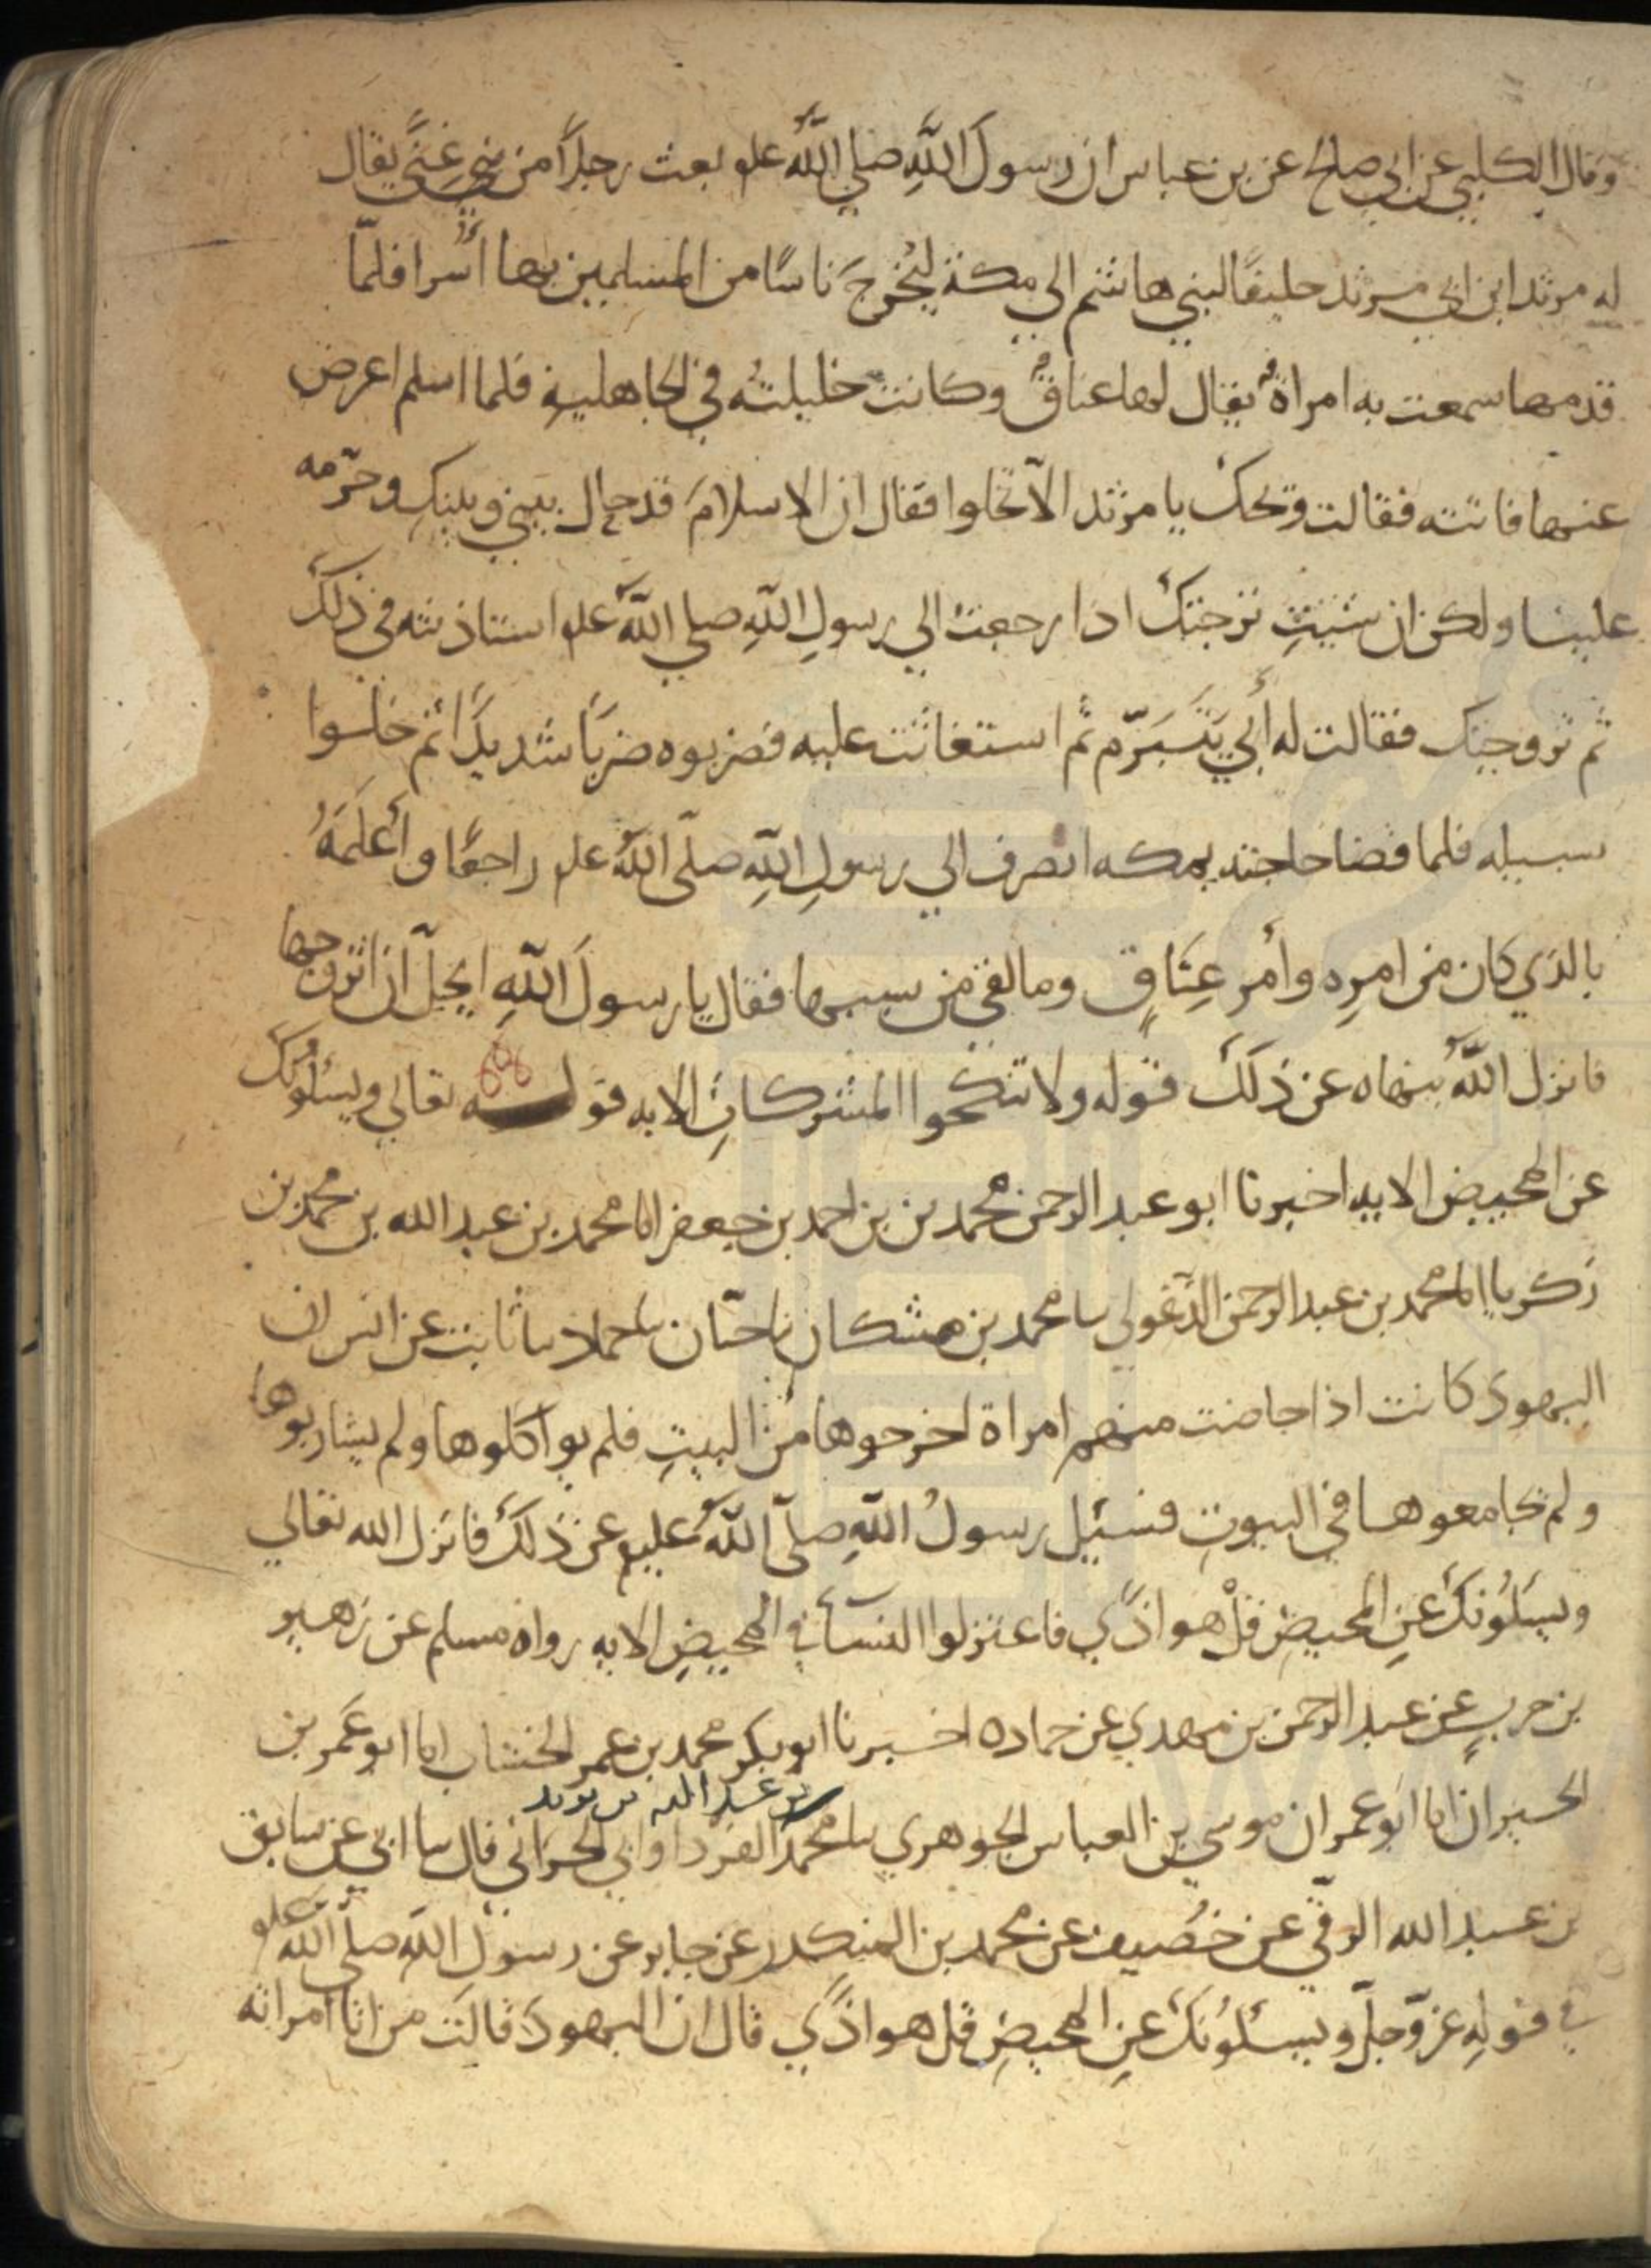 وقال الكلبي عن ابي صالح عن بن عباس ان رسولَ اللَّهِ صلى اللَّهُ علم بعث رجلاً من بني غِنيً يقال
له مرثد ابن ابي مرثد حليفًا لبني هاشم الي مكة ليُخْرجَ ناسًا من المسلمين بها أُسرا فلمّا
قدمها سمعت به امراةٌ يقال لها عناقٌ وكانت خليلتُه في الجاهليةِ فلما اسلم اعرض
عنها فاتته فقالت وتحك يا مرثد الا تخلوا فقال ان الاسلامَ قد حال بيني وبينكِ وحرّمه
علينا ولكن ان شيتِ تزجتك اذا رجعتُ الي رسولِ اللَّهِ صلي اللَّهُ علم استاذنته في ذلكَ
ثم تزوجتك فقالت له أَبي يَتَبَرّم ثم استغاثت عليه فضربوه ضربًا شديدًا ثم خلسوا
سبيله فلما قضا حاجته بمكه انصرف الي رسولِ اللَّهِ صلّى اللَّهُ علم راجعًا وأَعلَمَهُ
بالذي كان من امرِه وأمر عِنَاقٍ وما لقي من سببها فقال يا رسولَ اللَّهِ ايحلّ ان اتزوجها
فانزل اللَّهُ ينهاه عن ذلكَ قوله ولا تنكحوا المشركاتِ الايه قوله تعالي ويسلُونكَ
عن المحيض الايه اخبرنا ابو عبد الرحمن محمد بن بن احمد بن جعفر انا محمد بن عبد الله بن محمد بن
زكريا انا محمد بن عبد الرحمن الدَّغولي سا محمد بن مشكان نا حبّان سا حماد سا ثابت عن انس ان
اليهود كانت اذا حاضت منهم امراة اخرجوها من البيتِ فلم يوآكلوها ولم يشاربوها
ولم يجامعوها في البيوتِ فسئيل رسولُ اللَّهِ صلّى اللَّهُ عليم عن ذلكَ فانزل الله تعالي
ويسَلُونكَ عنِ المحيضِ قلْ هو اذًي فاعتزلوا النسآءَ في المحيضِ الايه رواه مسلم عن زهير
بن حربٍ عن عبد الرحمن بن مهدي عن حماده اخبرنا ابو بكر محمد بن عمر الخشاب انا ابو عَمر بن
بن عبد الله بن يزيد
الحيران انا ابو عمران موسي بن العباس الجوهري سا محمد القرداواني الحراني قال سا ابي عن سابق
بن عبد الله الرقّي عن خصُيف عن محمد بن المنكدر عن جابر عن رسول اللَّه صلّى اللَّهُ علم
في قولِهِ عزّ وجلّ ويسئلُونكَ عنِ المحيضِ قل هو اذًي قال ان اليهودَ قالَت من اتا امراته